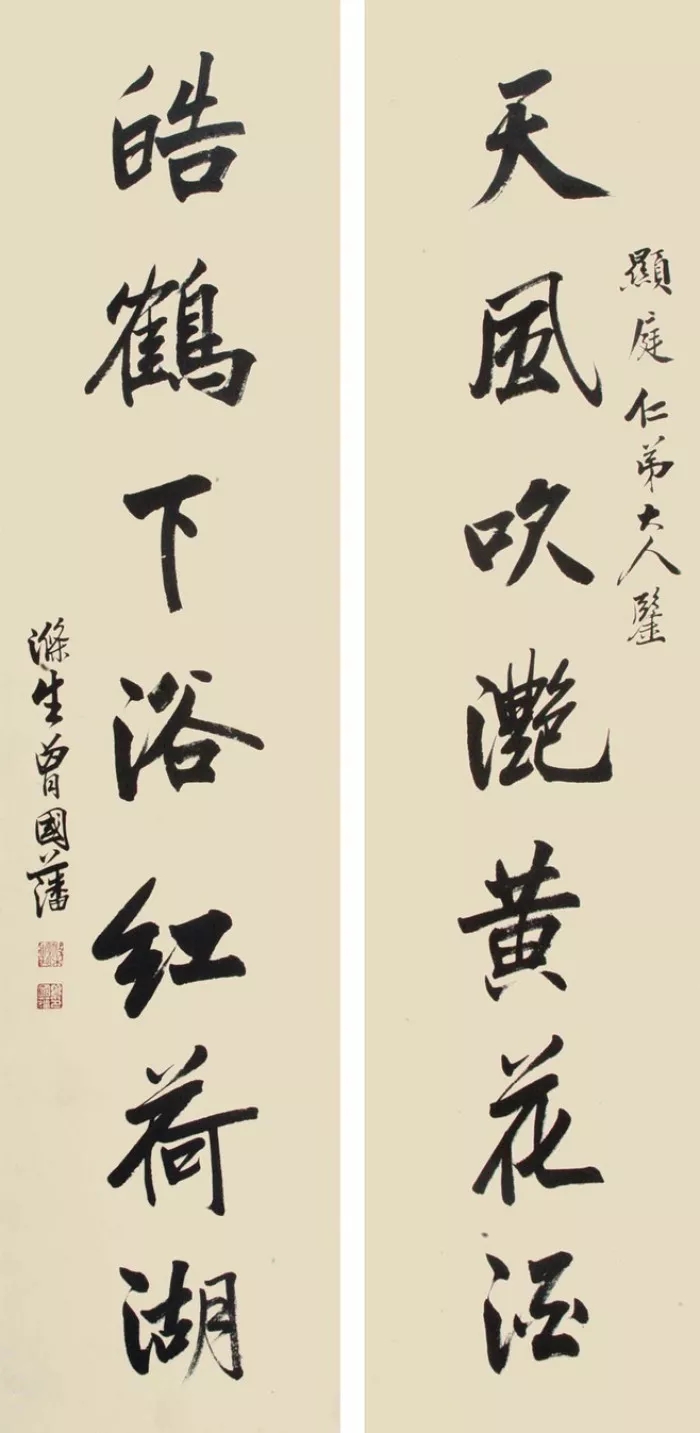 顯庭仁弟大人鑒
天風吹灔黃花酒
皓鶴下浴紅荷湖
滌生曾國藩